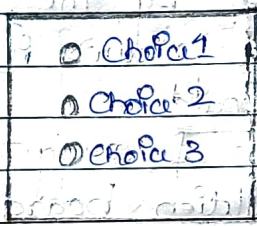 Choice 1
Choice 2
Choice 3